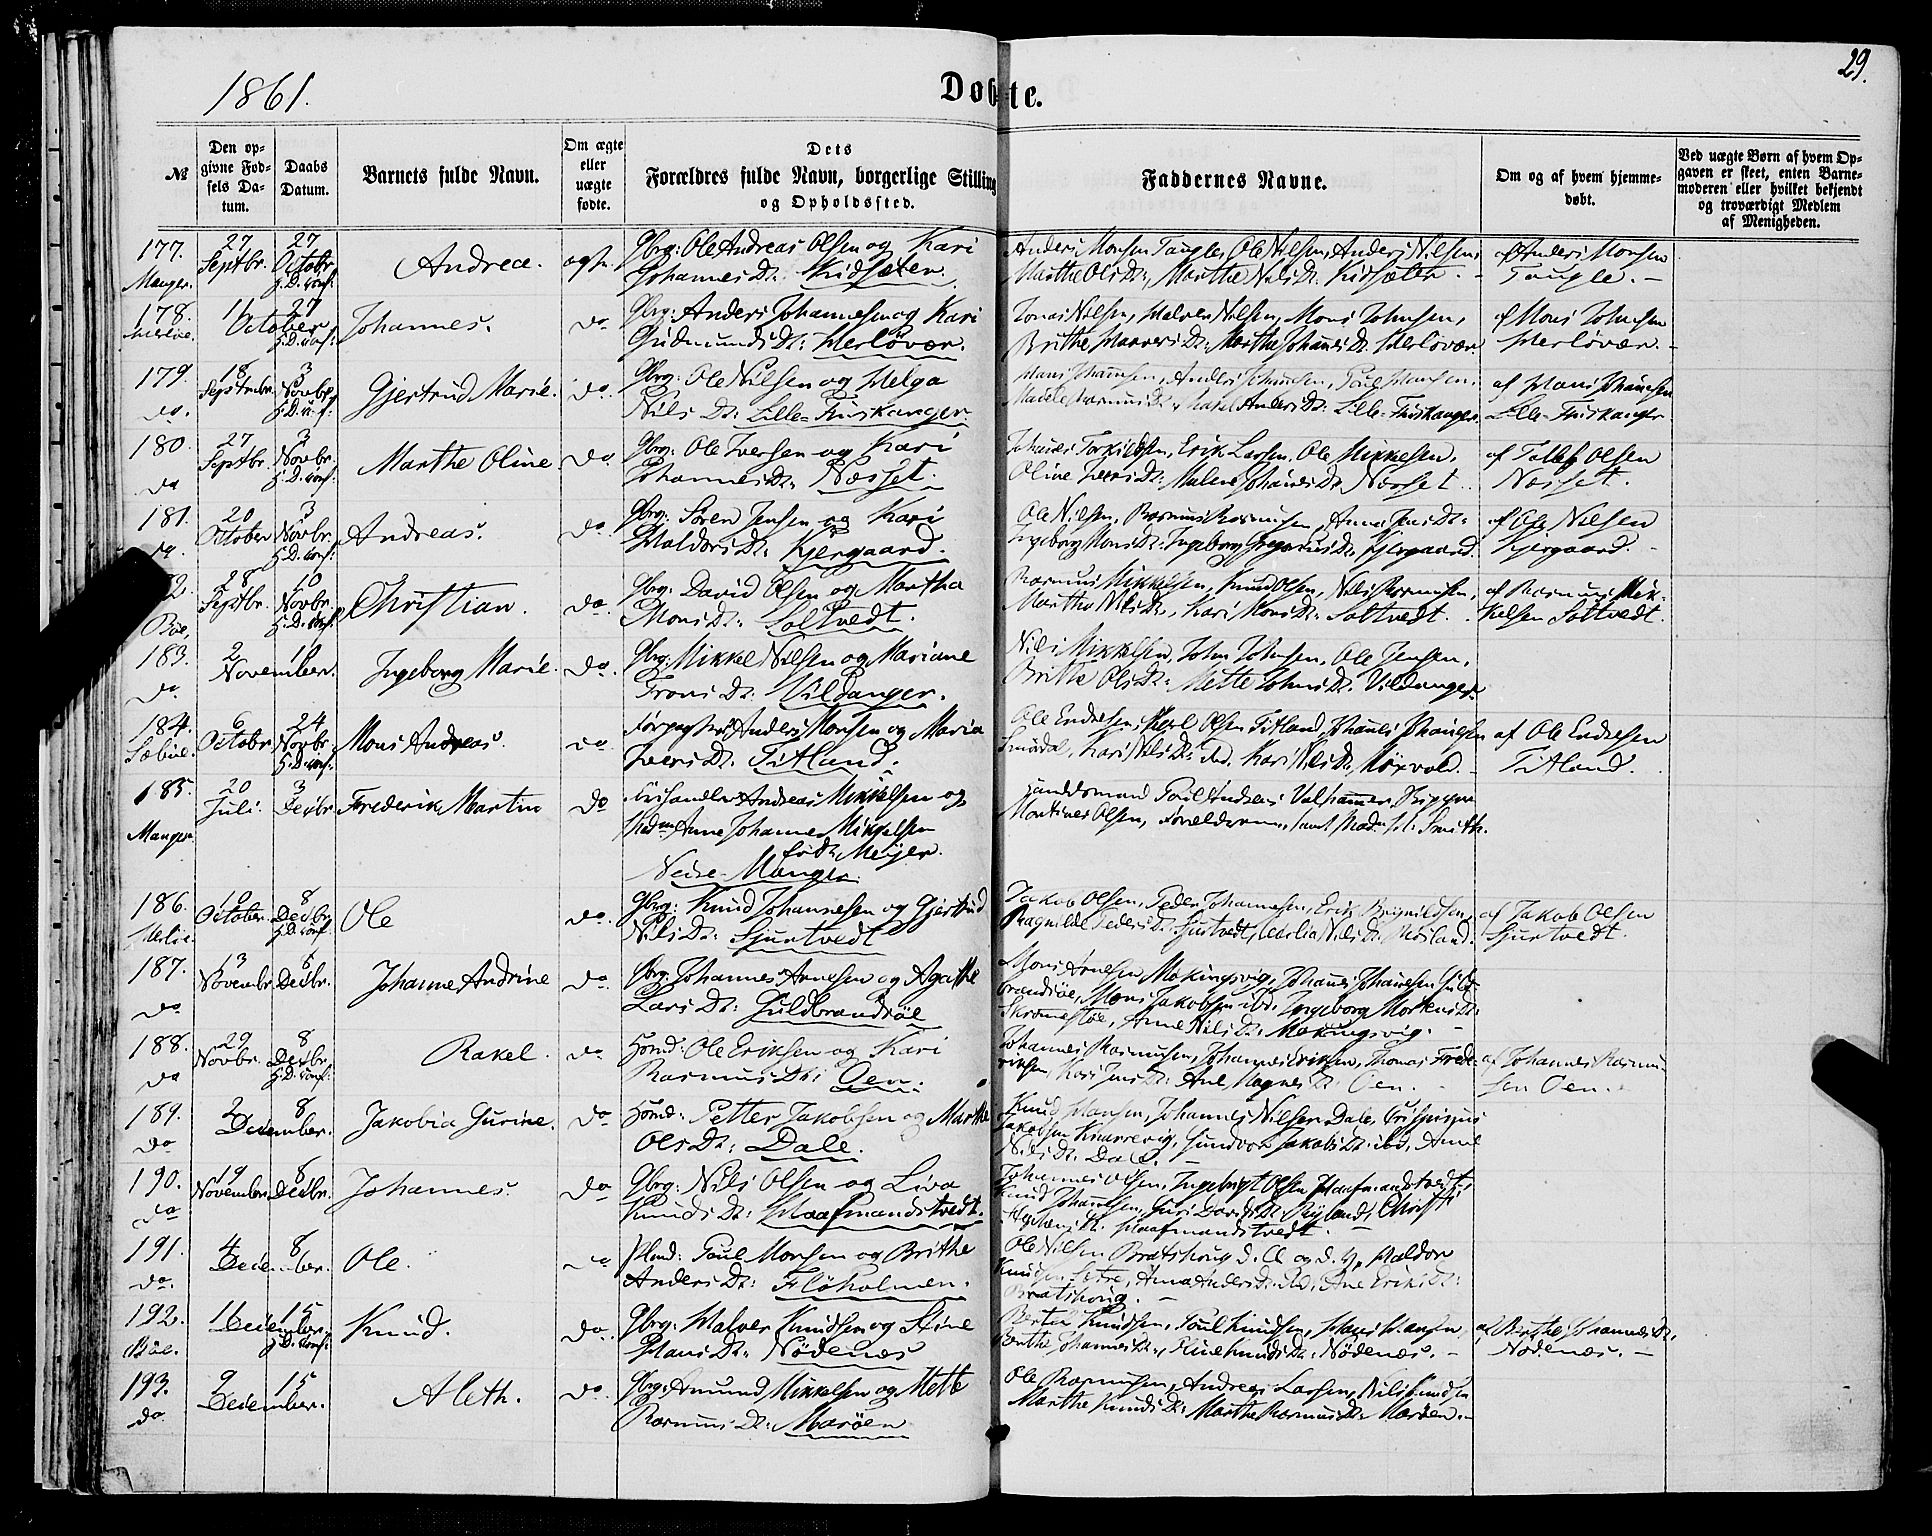 1861.
Døbte.
29.
No
Den opgivne Fødsels Datum.
Daabs Datum.
Barnets fulde Navn.
Om ægte eller uægte fødte.
Dets Forældres fulde Navn, borgerlige Stilling og Opholdssted.
Faddernes Navne.
Om og af hvem hjemmedøbt.
Ved uægte Børn af hvem Opgaven er skeet, enten Barnemoderen eller hvilket bekjendt og troværdigt Medlem af Menigheden.
177. Manger. 27 Septbr. 27 Octobr. H.D. conf: Andrea. Gbrg: Ole Andreas Olsen og Kari
Johannes Dt:
Anders Monsen Tangle, Ole Nilsen, Anders Nilsen,
Marthe Ols Dt:, Marthe Nils Dt:
af Anders Monsen
Tangle. -
178. 11 October 27 H.D. conf: Johannes. do Gbrg: Anders Johannesen og Kari
Gudmunds Dt: Herløvær.
Jonas Nilsen, Halvor Nilsen, Mons Johnsen,
Brithe Dt: Marthe Johans Dt: Herløvær.
af Mons Johnsen
Herløvær. -
179. do. 18 Septembr. 3 Novbr. Gjertrud Marie. do. Gbrg: Ole Nilsen og Helga
Nils Dt: Lille-Fuskanger
Hans Johannsen, Anders Johannsen, Poul Hansen,
Anders Dt: Lille-Fuskanger
af Hans Johannsen
Lille-Fuskanger
180. do 27 Septbr. 3 Novbr. H.D. conf: Marthe Oline do Gbrg: Ole Iversen og Kari
Johannes Dt: Næsset.
Johannes Torkildsen, Erik Larsen, Ole Mikkelsen,
Oline Ivers Dt: Malene Johannes Dt: Næsset.
af Olsen
Næsset.
181. do. 20 October 3 Novbr. H.D. conf: Andreas. do Gbrg: Søren Jensen og Kari
Haldors Dt: Kjergaard.
Ole Nilsen, Rasmus Rasmusen, Anna Jens Dt:
Ingeborg Mons Dt: Ingeborg Gregorius Dt: Kjergaard.
af Ole Nilsen
Kjergaard. -
2. Bøe, 28 Septbr. 10 Novbr. H.D. conf. Christian. do Gbrg: David Olsen og Martha
Mons Dt: Soltvedt.
Rasmus Mikkelsen, Knud Olsen, Nils Rasmusen,
Martha Nils Dt:, Kari Mons Dt: Soltvedt.
af Rasmus Mik-
kelsen Soltvedt.
183. do. 2 10 November. Ingeborg Marie. do. Gbrg: Mikkel Nilsen og Mariane
Frons Dt: Vildanger.
Nils Mikkelsen, John Johnsen, Ole Jensen,
Brithe Ols Dt: Mette Johns Dt: Vildanger.
184. Sæbøe. 6 Octobr. 24 Novbr. H.D. conf: Mons Andreas. do Forpagter Anders Monsen og Maria
Ivers Dt: Titland.
Ole Endresen, Olsen Titland, Johannes Johannesen
Smådal, Kari Nils Dt: ibd. Kari Nils Dt:
af Ole Endresen
Titland.
185. Manger. 20 Juli. 3 Decbr. Frederik Martin do Andreas Mikkelsen og
Anne Johanne Mikkelsen
født Meijer.
Nedre-Manger.
Poul Andreas Valhammer, Skipper
Martinus Olsen, Forældrene, samt Mad: Smith.
186. 10 October. 8 Decbr. H.D. conf. Ole do. Gbrg: Knud Johannesen og Gjertrud
Nils Dt: Sjurtvedt
Jakob Olsen, Peder Johannesen, Erik Brynildsen,
Ragnilde Peders Dt: Sjurtvedt, Cecilia Nils Dt:
af Jakob Olsen
Sjurtvedt.
187. do 13 Novembr. 8 Decbr. Johanne Andrine do. Gbrg: Johannes Arnesen og Agathe
Lars Dt: Guldbrandsøe
Mons Arnesen Makingsvig, Johannes Johannesen Guld-
brandsøe, Mons Jakobsen ibd. Ingeborg Mortens Dt:
Anne Nils Dt: Makingsvig.
188. do 29 Novbr. 8 Decbr. H.D. conf: Rakel. do Ole Eriksen og Kari
Rasmus Dt: Oen.
Johannes Rasmusen, Johannes Eriksen, Thomas Frede-
riksen, Kari Jens Dt: Ane Magnes Dt: Oen.
af Johannes Rasmu-
sen Oen.
189. do 2 8 December. Jakobia Gurine. do Petter Jakobsen og Marthe
Ols Dt: Dale.
Knud Hansen, Johannes Nilsen Dale,
Jakobsen Knarrevig, Gundvor Jakobs Dt: ibd, Anne
Nils Dt: Dale.
190. do 19 Novembr. 8 Decbr. Johannes. do Gbrg: Nils Olsen og Liva
Knuds Dt: Haafmandstvedt.
Johannes Olsen, Ingebrigt Olsen Haafmandstvedt,
Knud Johannesen, Guri Davids Dt: Ryland,
Haafmandstvedt.
191. do. 4 8 December. Ole. do Poul Monsen og Brithe
Anders Dt: Fløholmen.
Ole Nilsen Bratshoug d. Æ. og d. Y. Haldor
Knudsen Sætre, Anna Anders Dt: ibd, Ane Eriks Dt:
Bratshoug. -
192. Bøe. 11 15 December. H.D. conf: Knud. do. Gbrg: Halvor Knudsen og Stine
Hans Dt: Nødenæs
Knudsen, Poul Knudsen, Hans Hansen,
Brithe Johannes Dt:, Knuds Dt: Nødenæs. -
af Birthe Johannes Dt:
Nødenæs. -
193. do 9 15 December. Aleth. do. Gbrg: Amund Mikkelsen og Mette
Rasmus Dt: Marøen
Ole Rasmusen, Andreas Larsen, Nils Knudsen
Marthe Knuds Dt: Marthe Rasmus Dt: Marøen. -